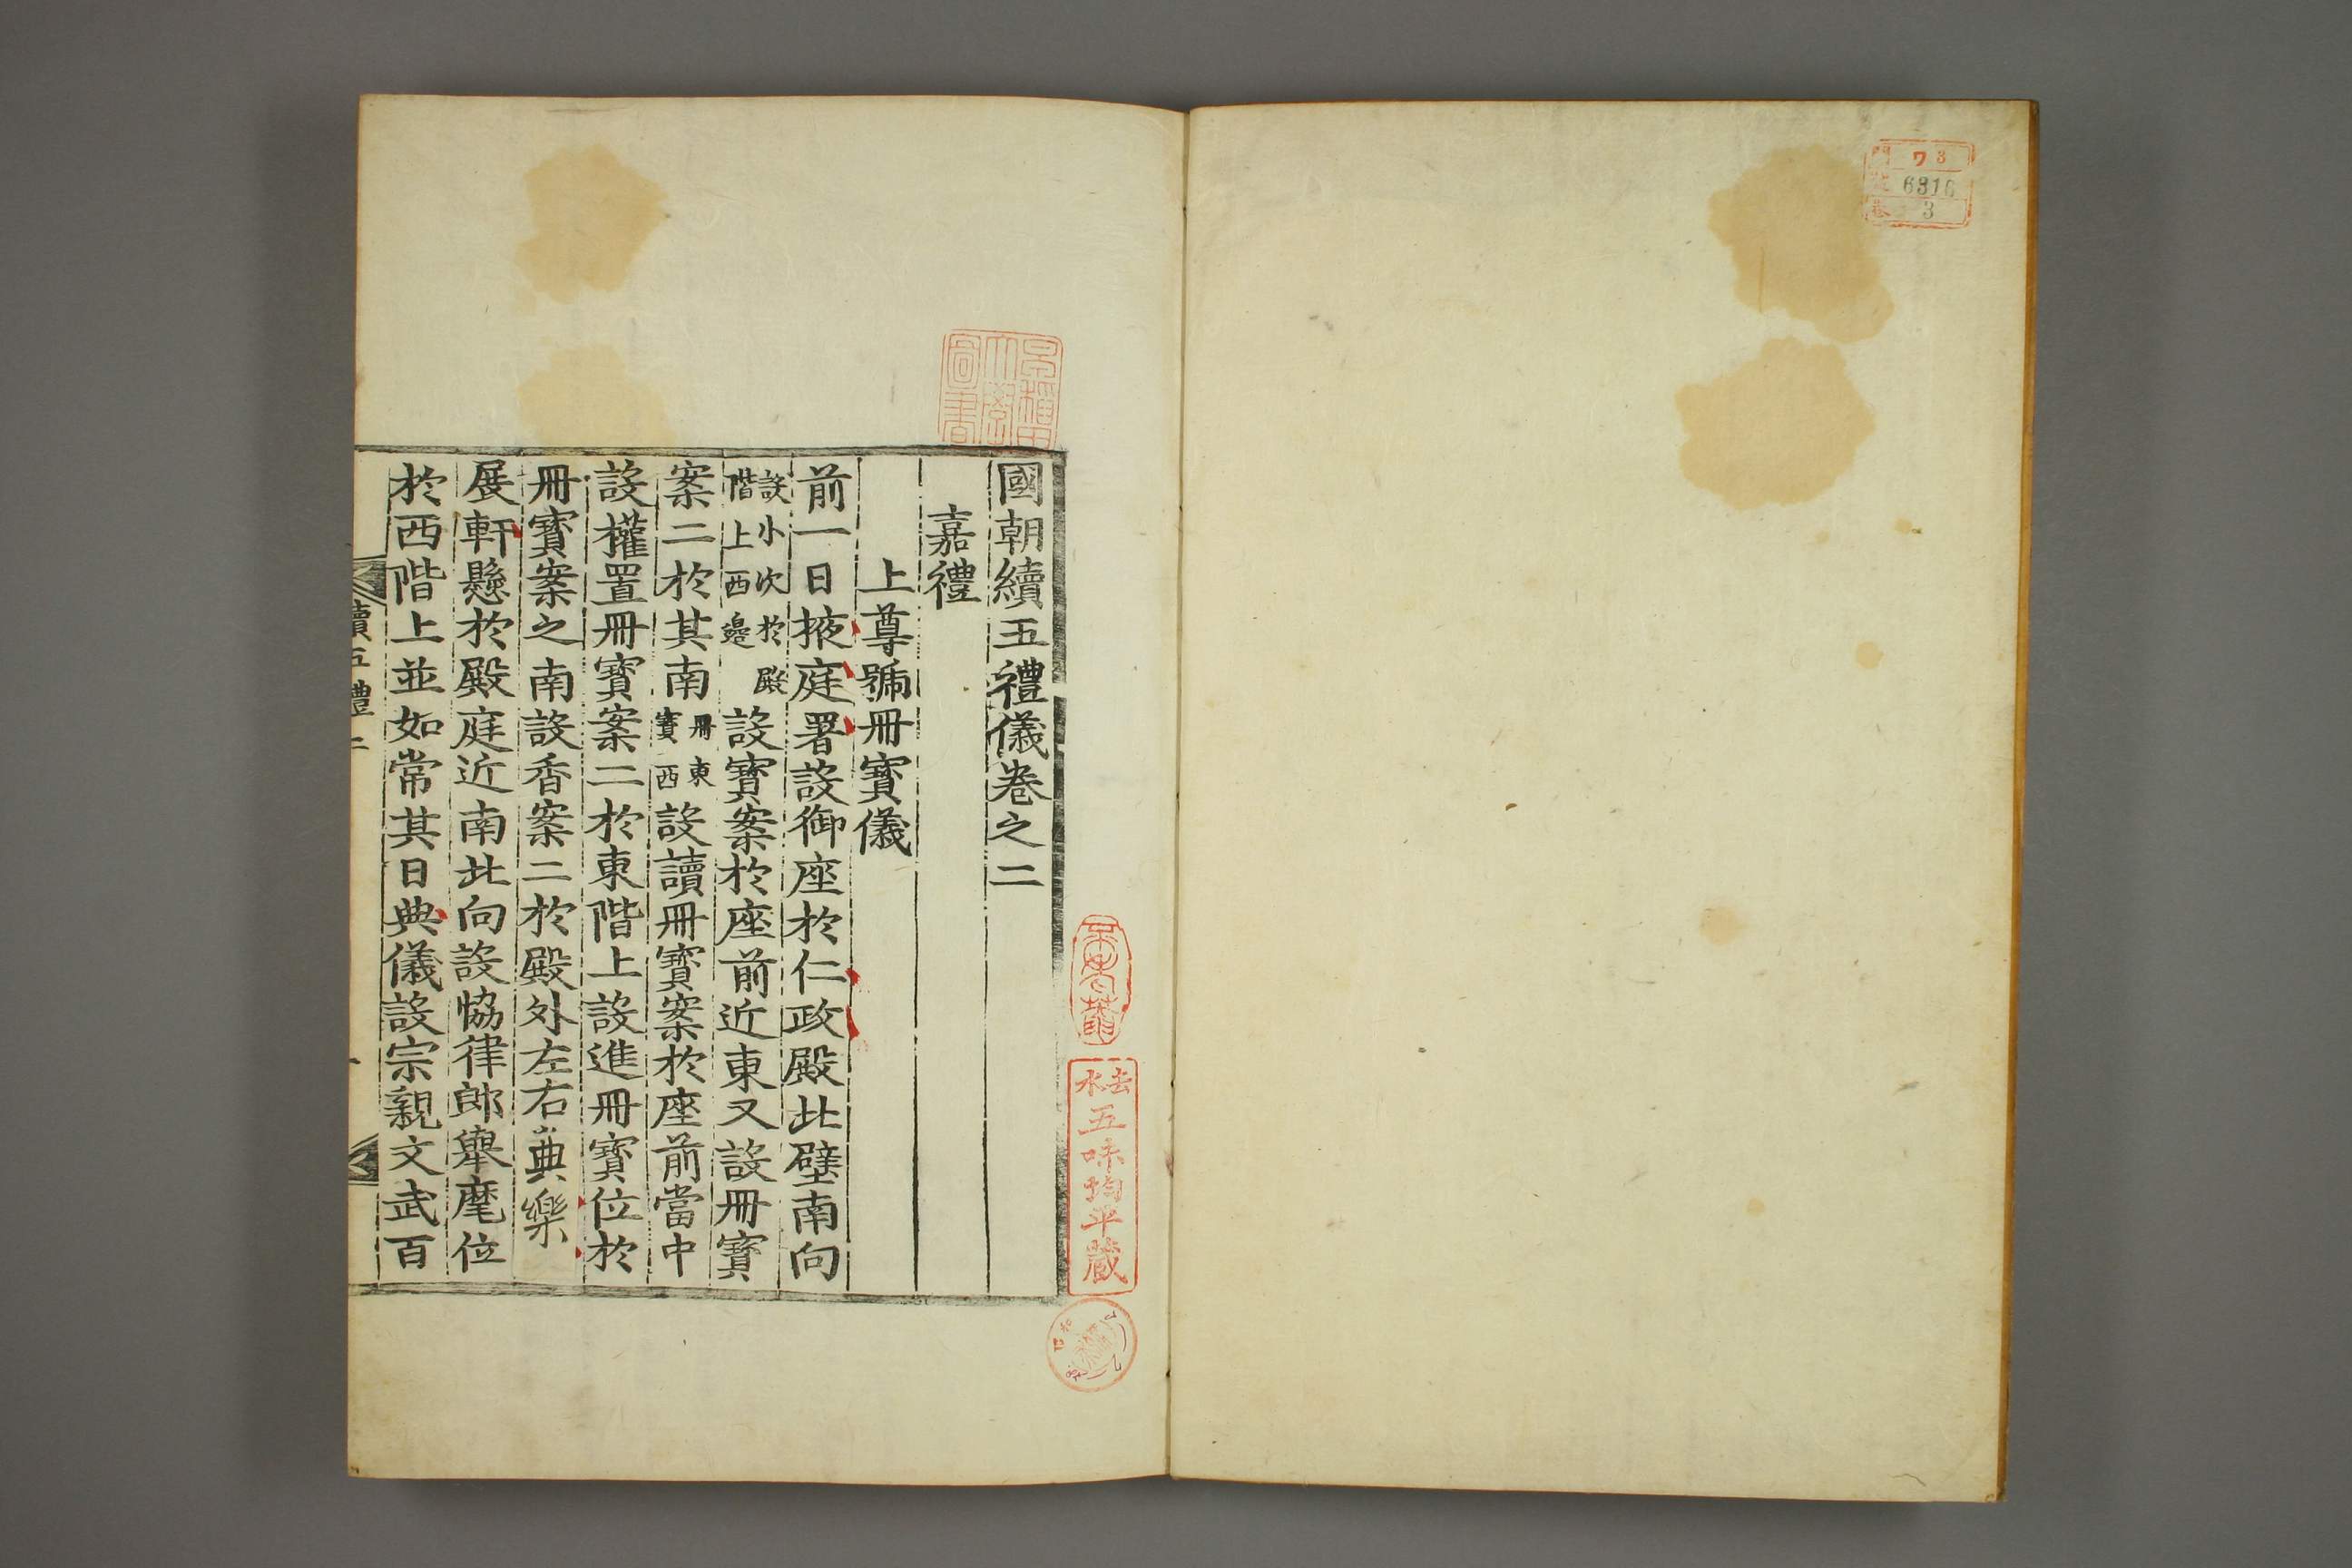 國朝續五禮儀卷之二
嘉禮
上尊號冊寶儀
前一日掖庭署設御座於仁政殿北壁南向
設小次於殿
階上西邊
設寶案於座前近東又設冊寶
案二於其南
冊東
寶西
設讀冊寶案於座前當中
設權置冊寶案二於東階上設進冊寶位於
冊寶案之南設香案二於殿外左右典樂
展軒懸於殿庭近南北向設恊律郎舉麾位
於西階上並如常其日典儀設宗親文武百
續五禮二
一
圖書
去水
五味均平藏
門 ワ3
6316
卷 3